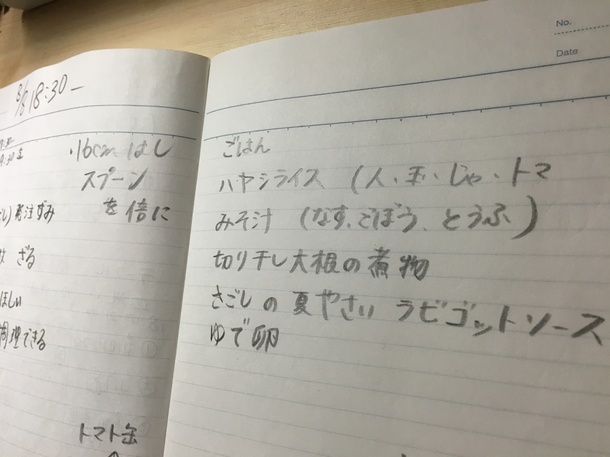 8/8 18:30〜
・16cm はし
スプーン
を倍に
発注ずみ
ざる
ほしい
調理できる
トマト缶
No.
Date
ごはん
ハヤシライス (人・玉・じゃ・トマ
みそ汁 (なす、ごぼう、とうふ)
切り干し大根の煮物
さごしの夏やさい ラビゴットソース
ゆで卵